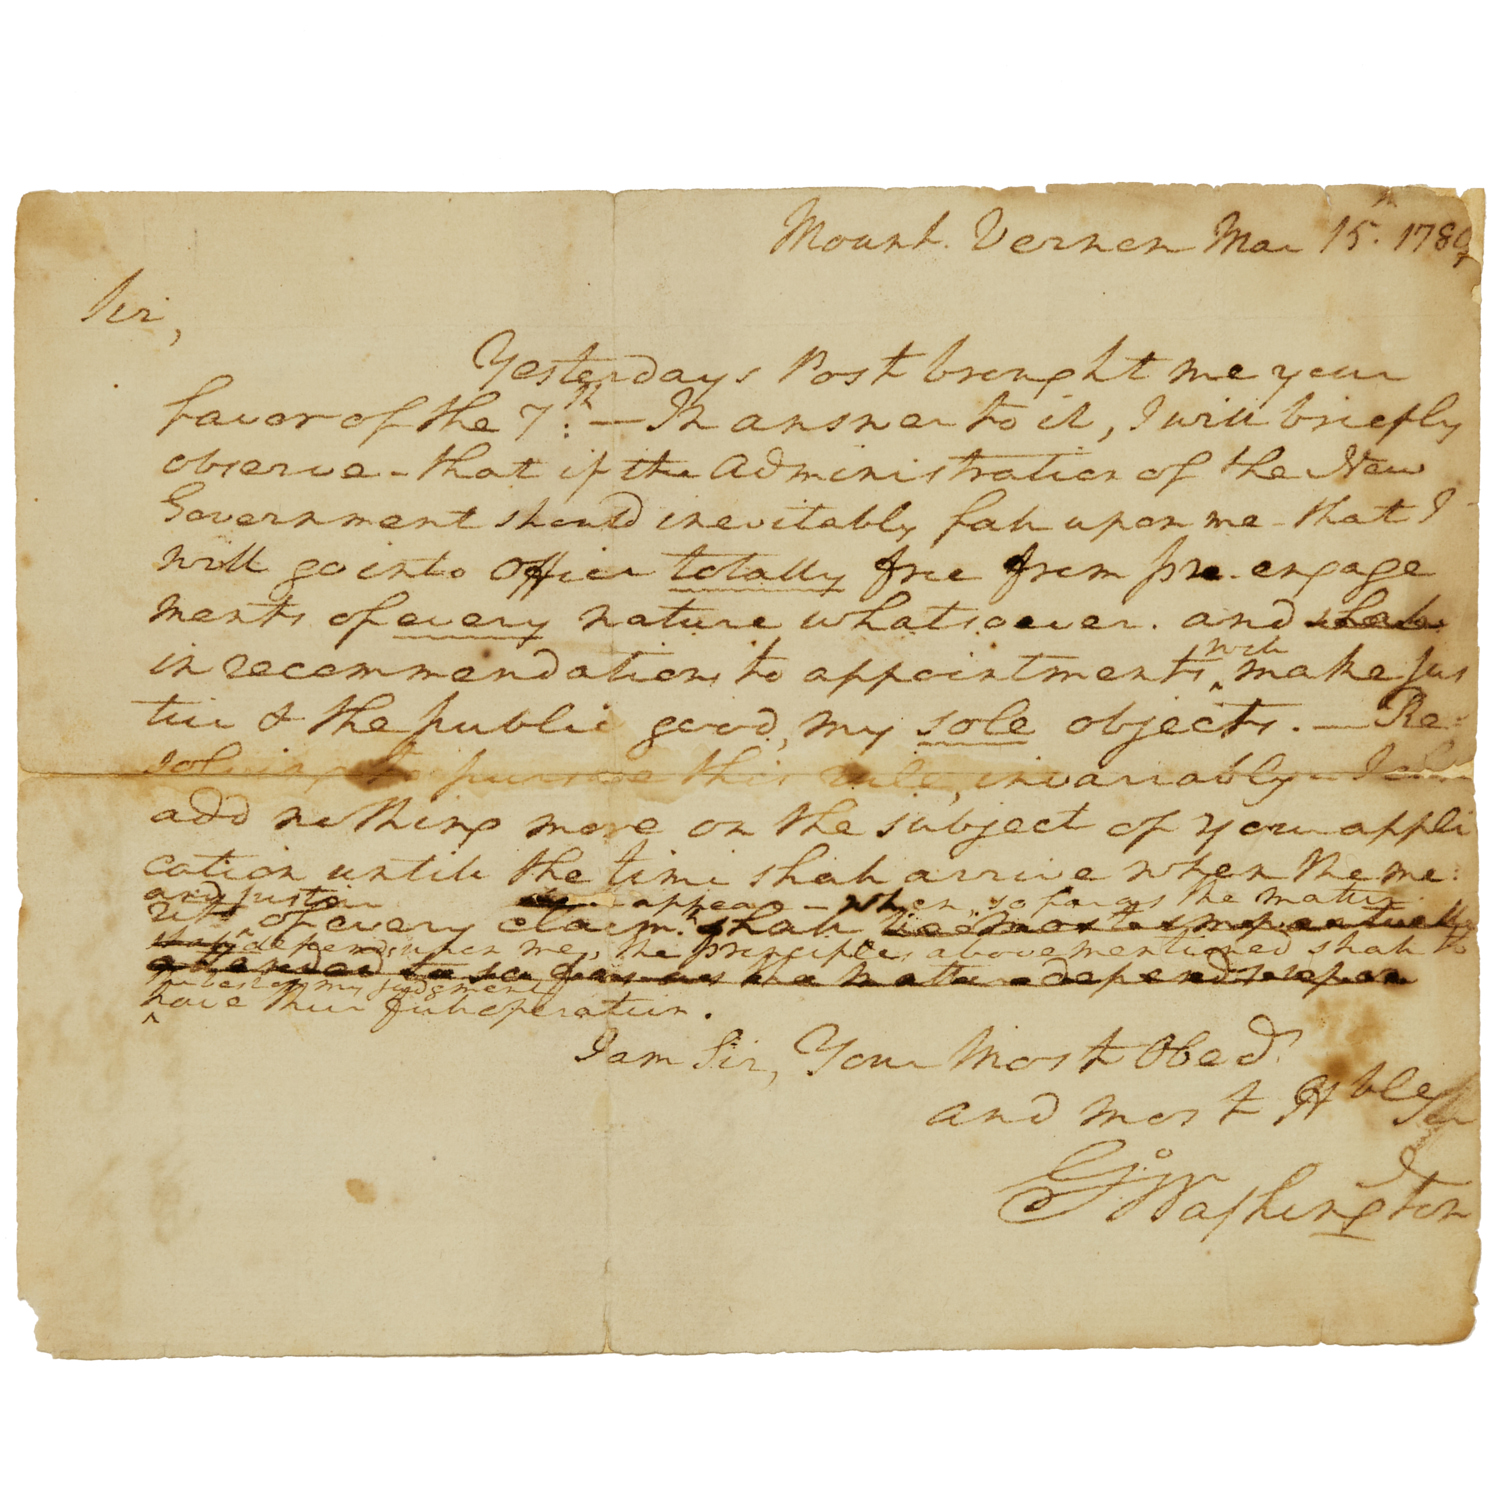 Mount. Vernon Mar 15th. 1789
Sir,
Yesterdays Post brought me your
favor of the 7th: — In answer to it, I will briefly
observe - that if the Administration of the New
Government should inevitably fall upon me - that I
will go into Office totally free from pre-engage
ments of every nature whatsoever. and shall
in recommendations to appointments will make jus
tice & the public good, my sole objects. — Re:
solving to pursue this rule, invariably - I
add nothing more on the subject of your appli
cation until the time shall arrive when the me:
and justice appear - when, so far as the matter
rits of every claim shall be most
depends upon me, the principles above mentioned shall to
attended to so far as the matter depends upon
the best of my judgment
have their full operation.
I am Sir, Your Most Obed.
and most Hble Ser
Go: Washington